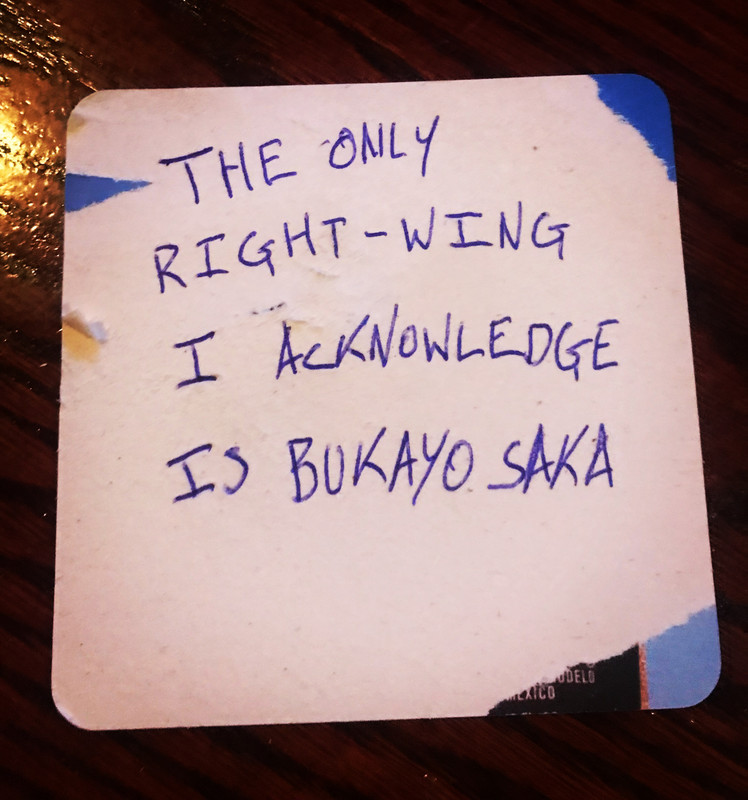 THE ONLY
RIGHT-WING
I ACKNOWLEDGE
IS BUKAYO SAKA
MEXICO